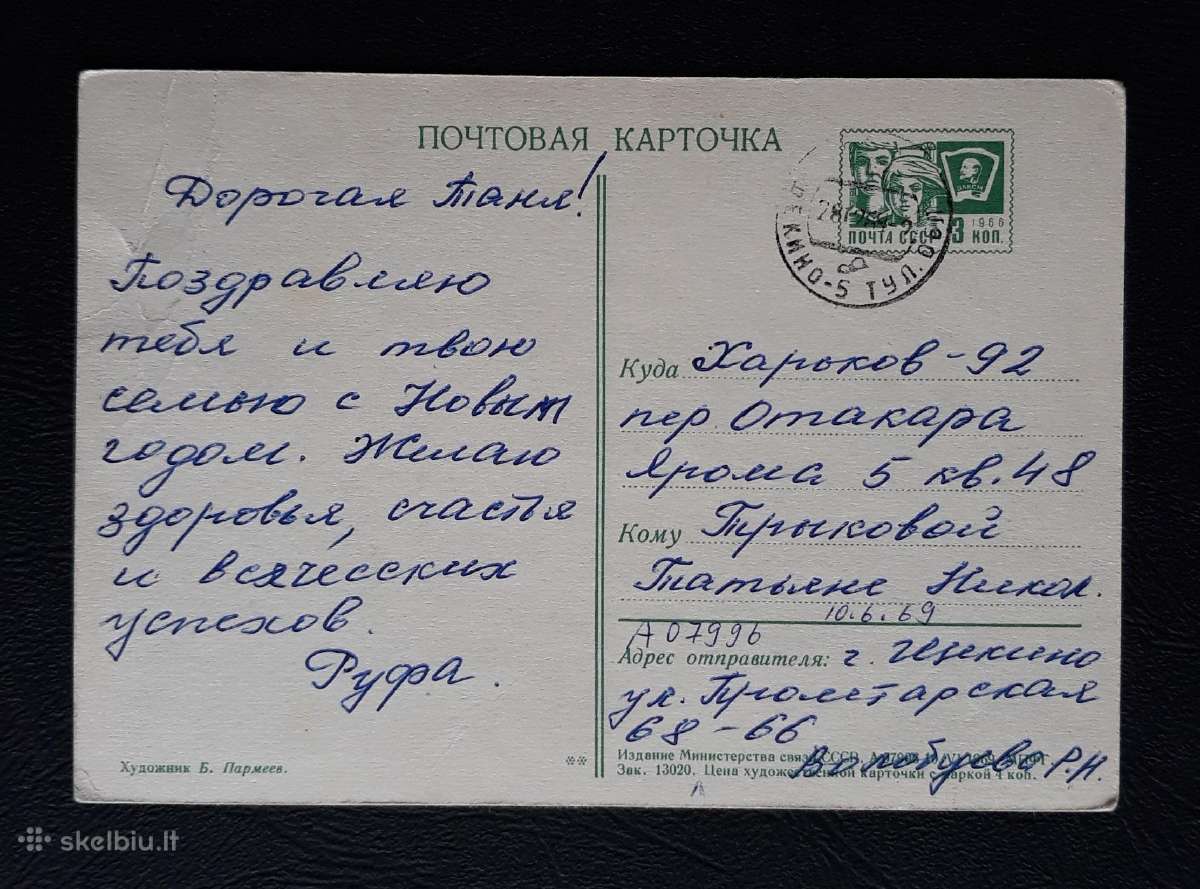 ПОЧТОВАЯ КАРТОЧКА
Дорогая Таня!
Поздравляю
тебя и твою
семью с Новым
годом. Желаю
здоровья, счастья
и всяческих
успехов.
Руфа.
Художник Б. Пармеев.
ВЛКСМ
1966
ПОЧТА СССР
3 КОП.
ЩЕКИНО-5 ТУЛ. ОБ
Куда Харьков-92
пер. Отакара
Яроша 5 кв. 48
Кому Трыковой
Татьяне Никол.
10.6.69
А 07996
Адрес отправителя: г. Щекино
ул. Пролетарская
68-66
Издание Министерства связи СССР.
Зак. 13020. Цена художественной карточки с маркой 4 коп.
Р.Н.
skelbiu.lt